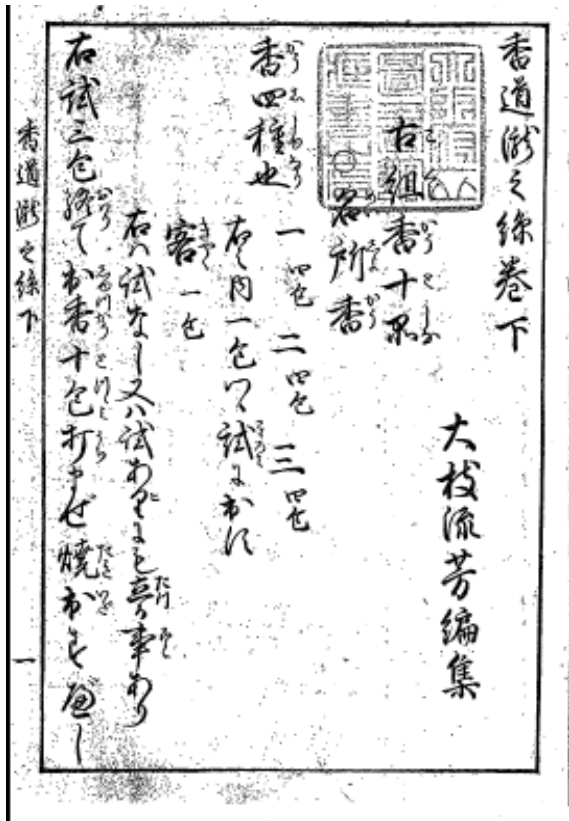 香道瀧之絲巻下
大枝流芳編集
古組香十品
名所香
香四種也
一 四包 二 四包 三 四包
右之内一包ツヽ試に出す
客 一包
右ハ試なし又ハ試あり事あり
右試三包終て出香十包打まぜ焼出すべし
香道瀧之絲下
一